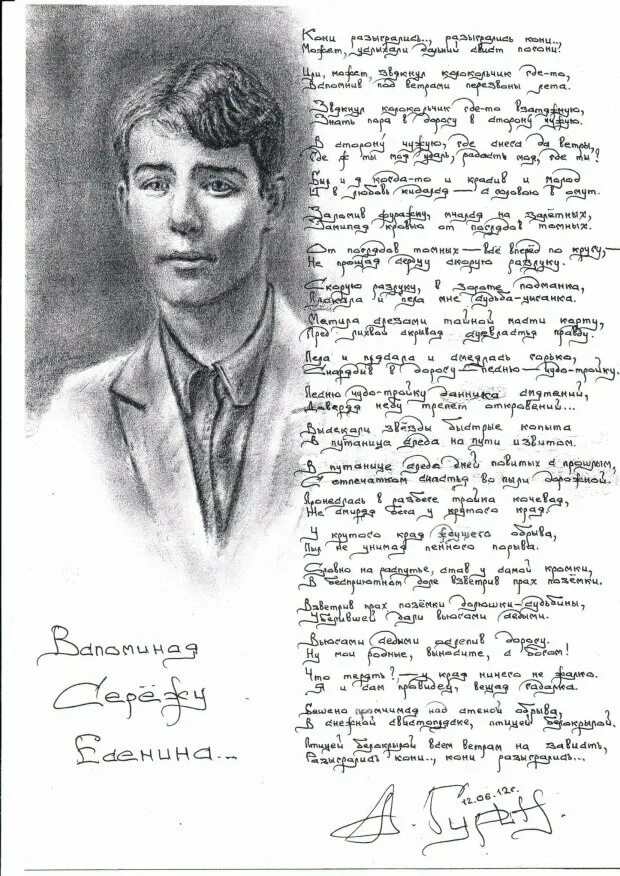 Кони разыгрались.., разыгрались кони...
Может, услыхали дальний свист погони?
Или, может, звякнул колокольчик где-то,
Вспомнив под ветрами перезвоны лета.
Звякнул колокольчик где-то взатяжную,
Знать пора в дорогу в сторону чужую.
В сторону чужую, где снега да ветры,
Где ж ты моя удаль, радость моя, где ты?
Был и я когда-то и красив и молод
И в любовь кидался — головою в омут.
Заломив фуражку, мчался на залётных,
Закипая кровью от поглядов томных.
От поглядов томных — всё вперёд по кругу,—
Не прощая сердцу скорую разлуку.
Скорую разлуку, в золоте подманка,
Плакала и пела мне судьба-цыганка.
Метила слезами тайной масти карту,
Пред лихвой скрывая суевластья правду.
Пела и плясала и смеялась горько,
Снарядив в дорогу — песню — чудо-тройку.
Песню чудо-тройку данника смятений,
Доверяя небу трепет откровений...
Высекали звёзды быстрые копыта
В путанице следа на пути извитом.
В путанице следа дней повитых с прошлым,
С отпечатком счастья во пыли дорожной.
Пронеслась в разбеге тройка кочевая,
Не смиряя бега у крутого края.
У крутого края ждущего обрыва,
Пыл не унимая пенного порыва.
Словно на распутье, став у самой кромки,
В бесприютном поле взветрив прах позёмки.
Взветрив прах позёмки долюшки-судьбины,
Убелившей дали вьюгами седыми.
Вьюгами седыми ослепив дорогу.
Ну мои родные, выносите, с богом!
Что терять? — у края ничего не жалко.
Я и сам провидец, вещая гадалка.
Бешено промчимая над стеной обрыва,
В снежной свистопляске, птицей белокрылой.
Птицей белокрылой всем ветрам на зависть,
Разыгрались кони.., кони разыгрались...
Вспоминая
Серёжу
Есенина...
12.06.12г.